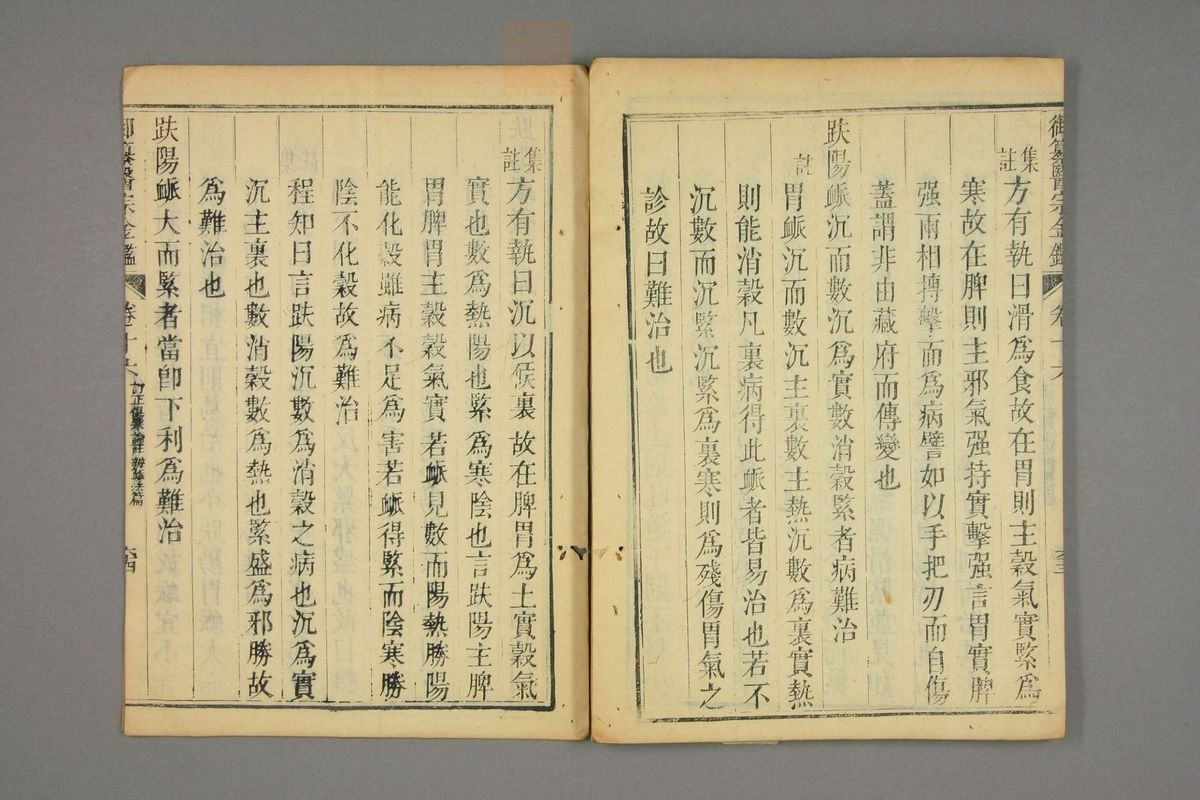 御纂醫宗金鑑 卷十六 六三
集註 方有執曰滑爲食故在胃則主穀氣實緊爲
寒故在脾則主邪氣强持實擊强言胃實脾
强兩相搏擊而爲病譬如以手把刃而自傷
蓋謂非由藏府而傳變也
趺陽脈沉而數沉爲實數消穀緊者病難治
註 胃脈沉而數沉主裏數主熱沉數爲裏實熱
則能消穀凡裏病得此脈者皆易治也若不
沉數而沉緊沉緊爲裏寒則爲殘傷胃氣之
診故曰難治也
集註 方有執曰沉以候裏故在脾胃爲土實穀氣
實也數爲熱陽也緊爲寒陰也言趺陽主脾
胃脾胃主穀穀氣實若脈見數而陽熱勝陽
能化穀雖病不足爲害若脈得緊而陰寒勝
陰不化穀故爲難治
程知曰言趺陽沉數爲消穀之病也沉爲實
沉主裏也數消穀數爲熱也緊盛爲邪勝故
爲難治也
趺陽脈大而緊者當卽下利爲難治
御纂醫宗金鑑 卷十六 訂正傷寒論註 辨脈法篇 六四